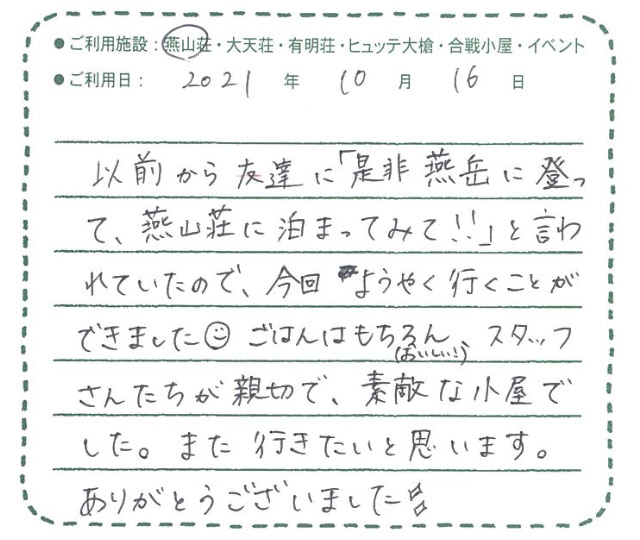 ● ご利用施設：燕山荘・大天荘・有明荘・ヒュッテ大槍・合戦小屋・イベント
● ご利用日： 2021 年 10 月 16 日
以前から友達に「是非燕岳に登っ
て、燕山荘に泊まってみて!!」と言わ
れていたので、今回 ようやく行くことが
できました☺ ごはんはもちろん スタッフ
(おいしい!)
さんたちが親切で、素敵な小屋で
した。また行きたいと思います。
ありがとうございました